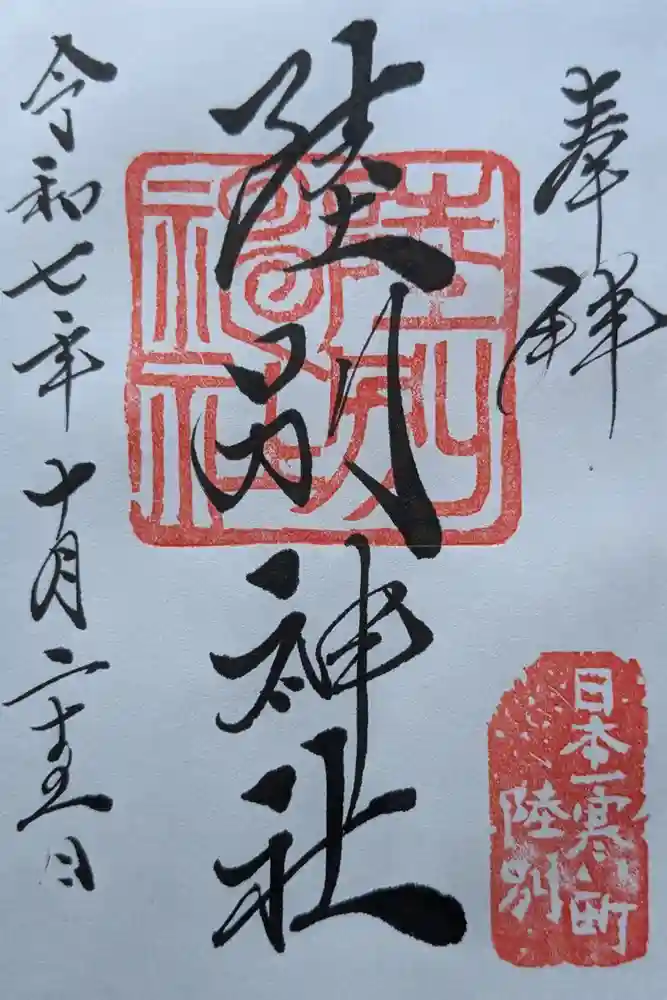 奉拝
日本一寒い町
陸別
陸別神社
陸別
神社
令和七年十月二十五日